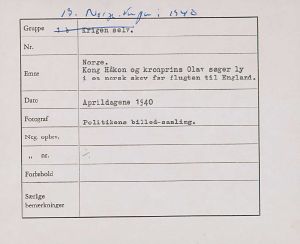 13. Norge. Krigen i 1940
Gruppe krigen selv.
Nr.
Emne Norge.
Kong Håkon og kronprins Olav søger ly
i en norsk skov før flugten til England.
Dato Aprildagene 1940
Fotograf Politikens billed-samling.
Neg. opbev.
„ nr.
Forbehold
Særlige
bemærkninger